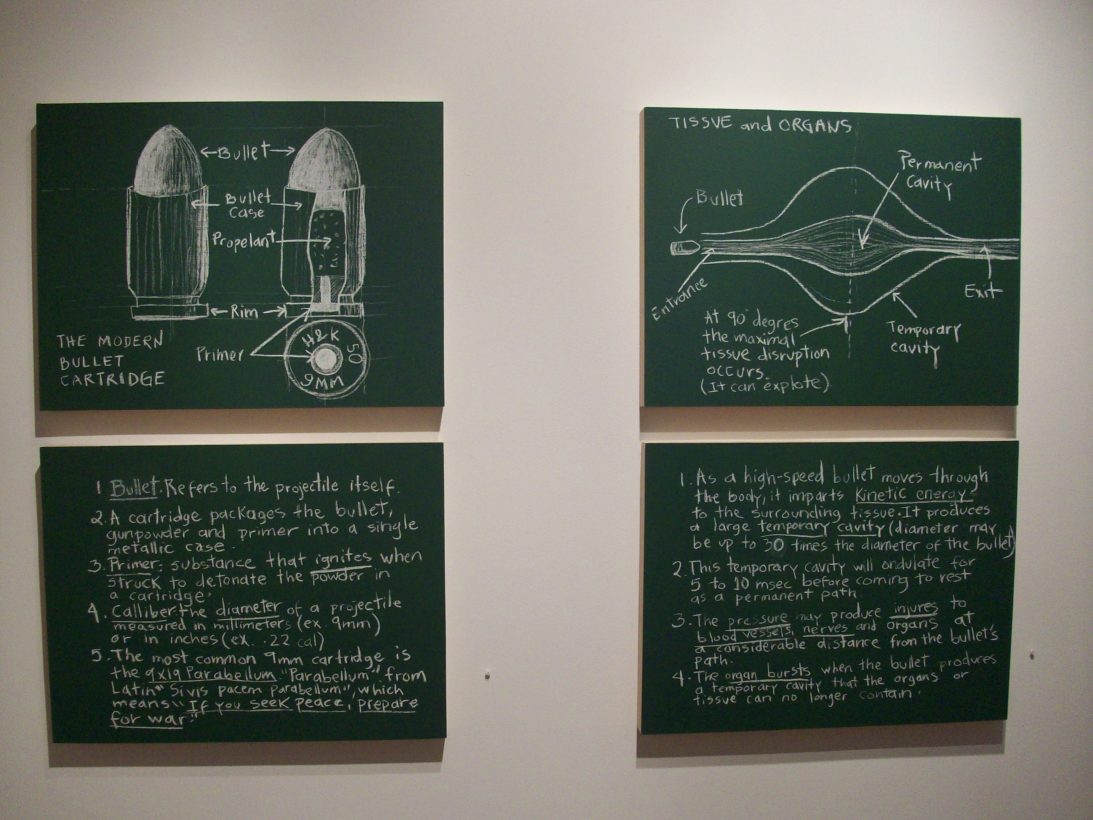 Bullet
Bullet
Case
Propelant
Rim
Primer
H&K
50
9MM
THE MODERN
BULLET
CARTRIDGE
1 Bullet. Refers to the projectile itself.
2. A cartridge packages the bullet,
gunpowder and primer into a single
metallic case.
3. Primer: substance that ignites when
struck to detonate the powder in
a cartridge.
4. Calliber: the diameter of a projectile
measured in millimeters (ex. 9mm)
or in inches (ex. .22 cal)
5. The most common 9mm cartridge is
the 9x19 Parabellum. "Parabellum" from
Latin "Sivis pacem parabellum", which
means "If you seek peace, prepare
for war."
TISSUE and ORGANS
Permanent
cavity
Bullet
Entrance
Exit
Temporary
cavity
At 90° degres
the maximal
tissue disruption
occurs.
(It can explote)
1. As a high-speed bullet moves through
the body, it imparts Kinetic energy
to the surrounding tissue. It produces
a large temporary cavity (diameter may
be up to 30 times the diameter of the bullet)
2. This temporary cavity will ondulate for
5 to 10 msec before coming to rest
as a permanent path.
3. The pressure may produce injures to
blood vessels, nerves and organs at
a considerable distance from the bullet's
path.
4. The organ bursts when the bullet produces
a temporary cavity that the organs or
tissue can no longer contain.